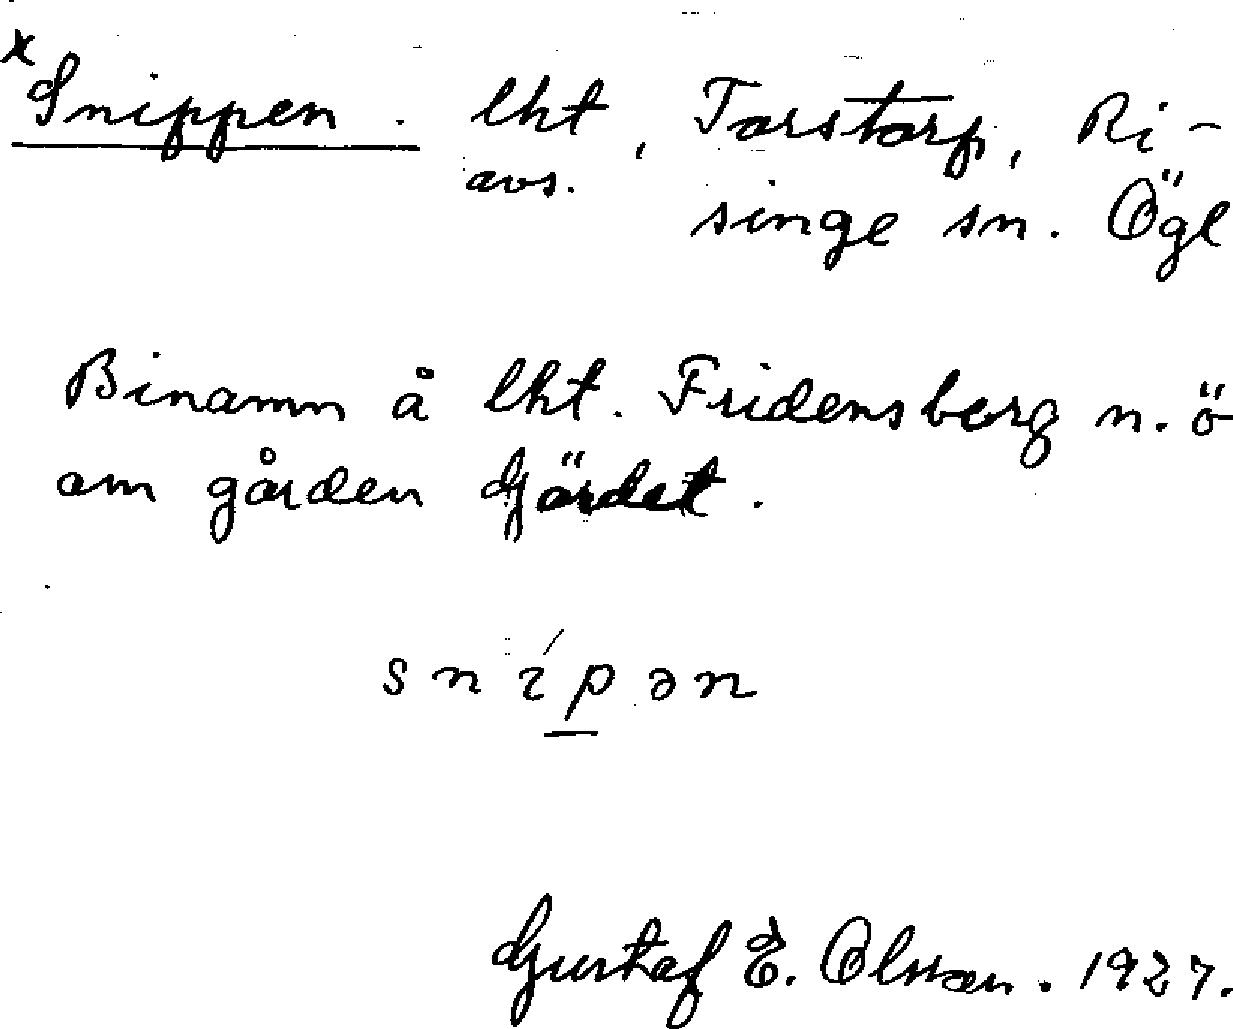 x Snippen. lht, Torstorp, Ri-
avs.
singe sn. Ögl
Binamn å lht. Fridensberg n.ö
om gården Gärdet.
snípən
Gustaf E. Olsson. 1927.